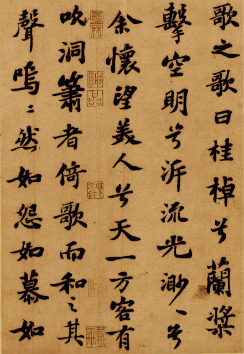 歌之歌曰桂棹兮蘭槳
擊空明兮泝流光渺〻兮
余懷望美人兮天一方客有
吹洞簫者倚歌而和之其
聲嗚〻然如怨如慕如